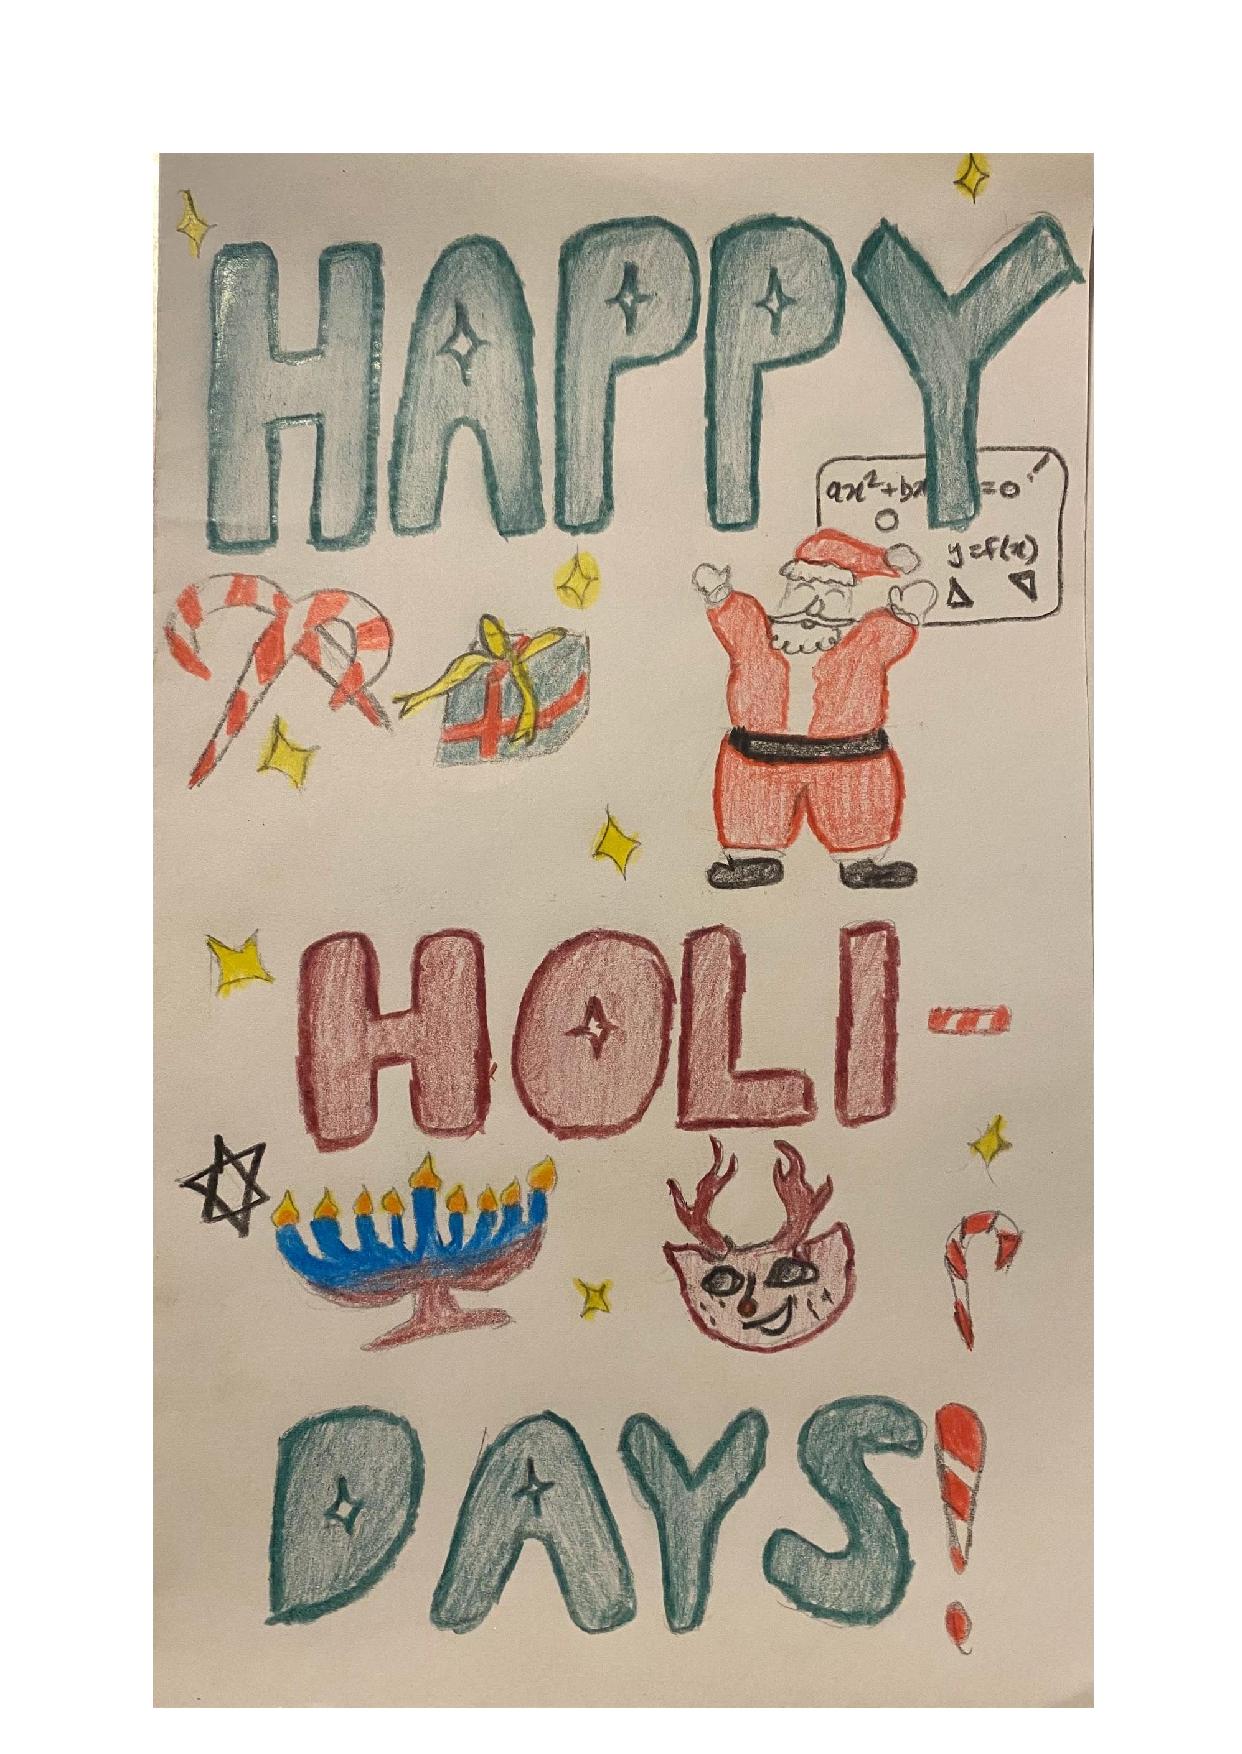 HAPPY
ax²+bx =0
y=f(x)
HOLI-
DAYS!